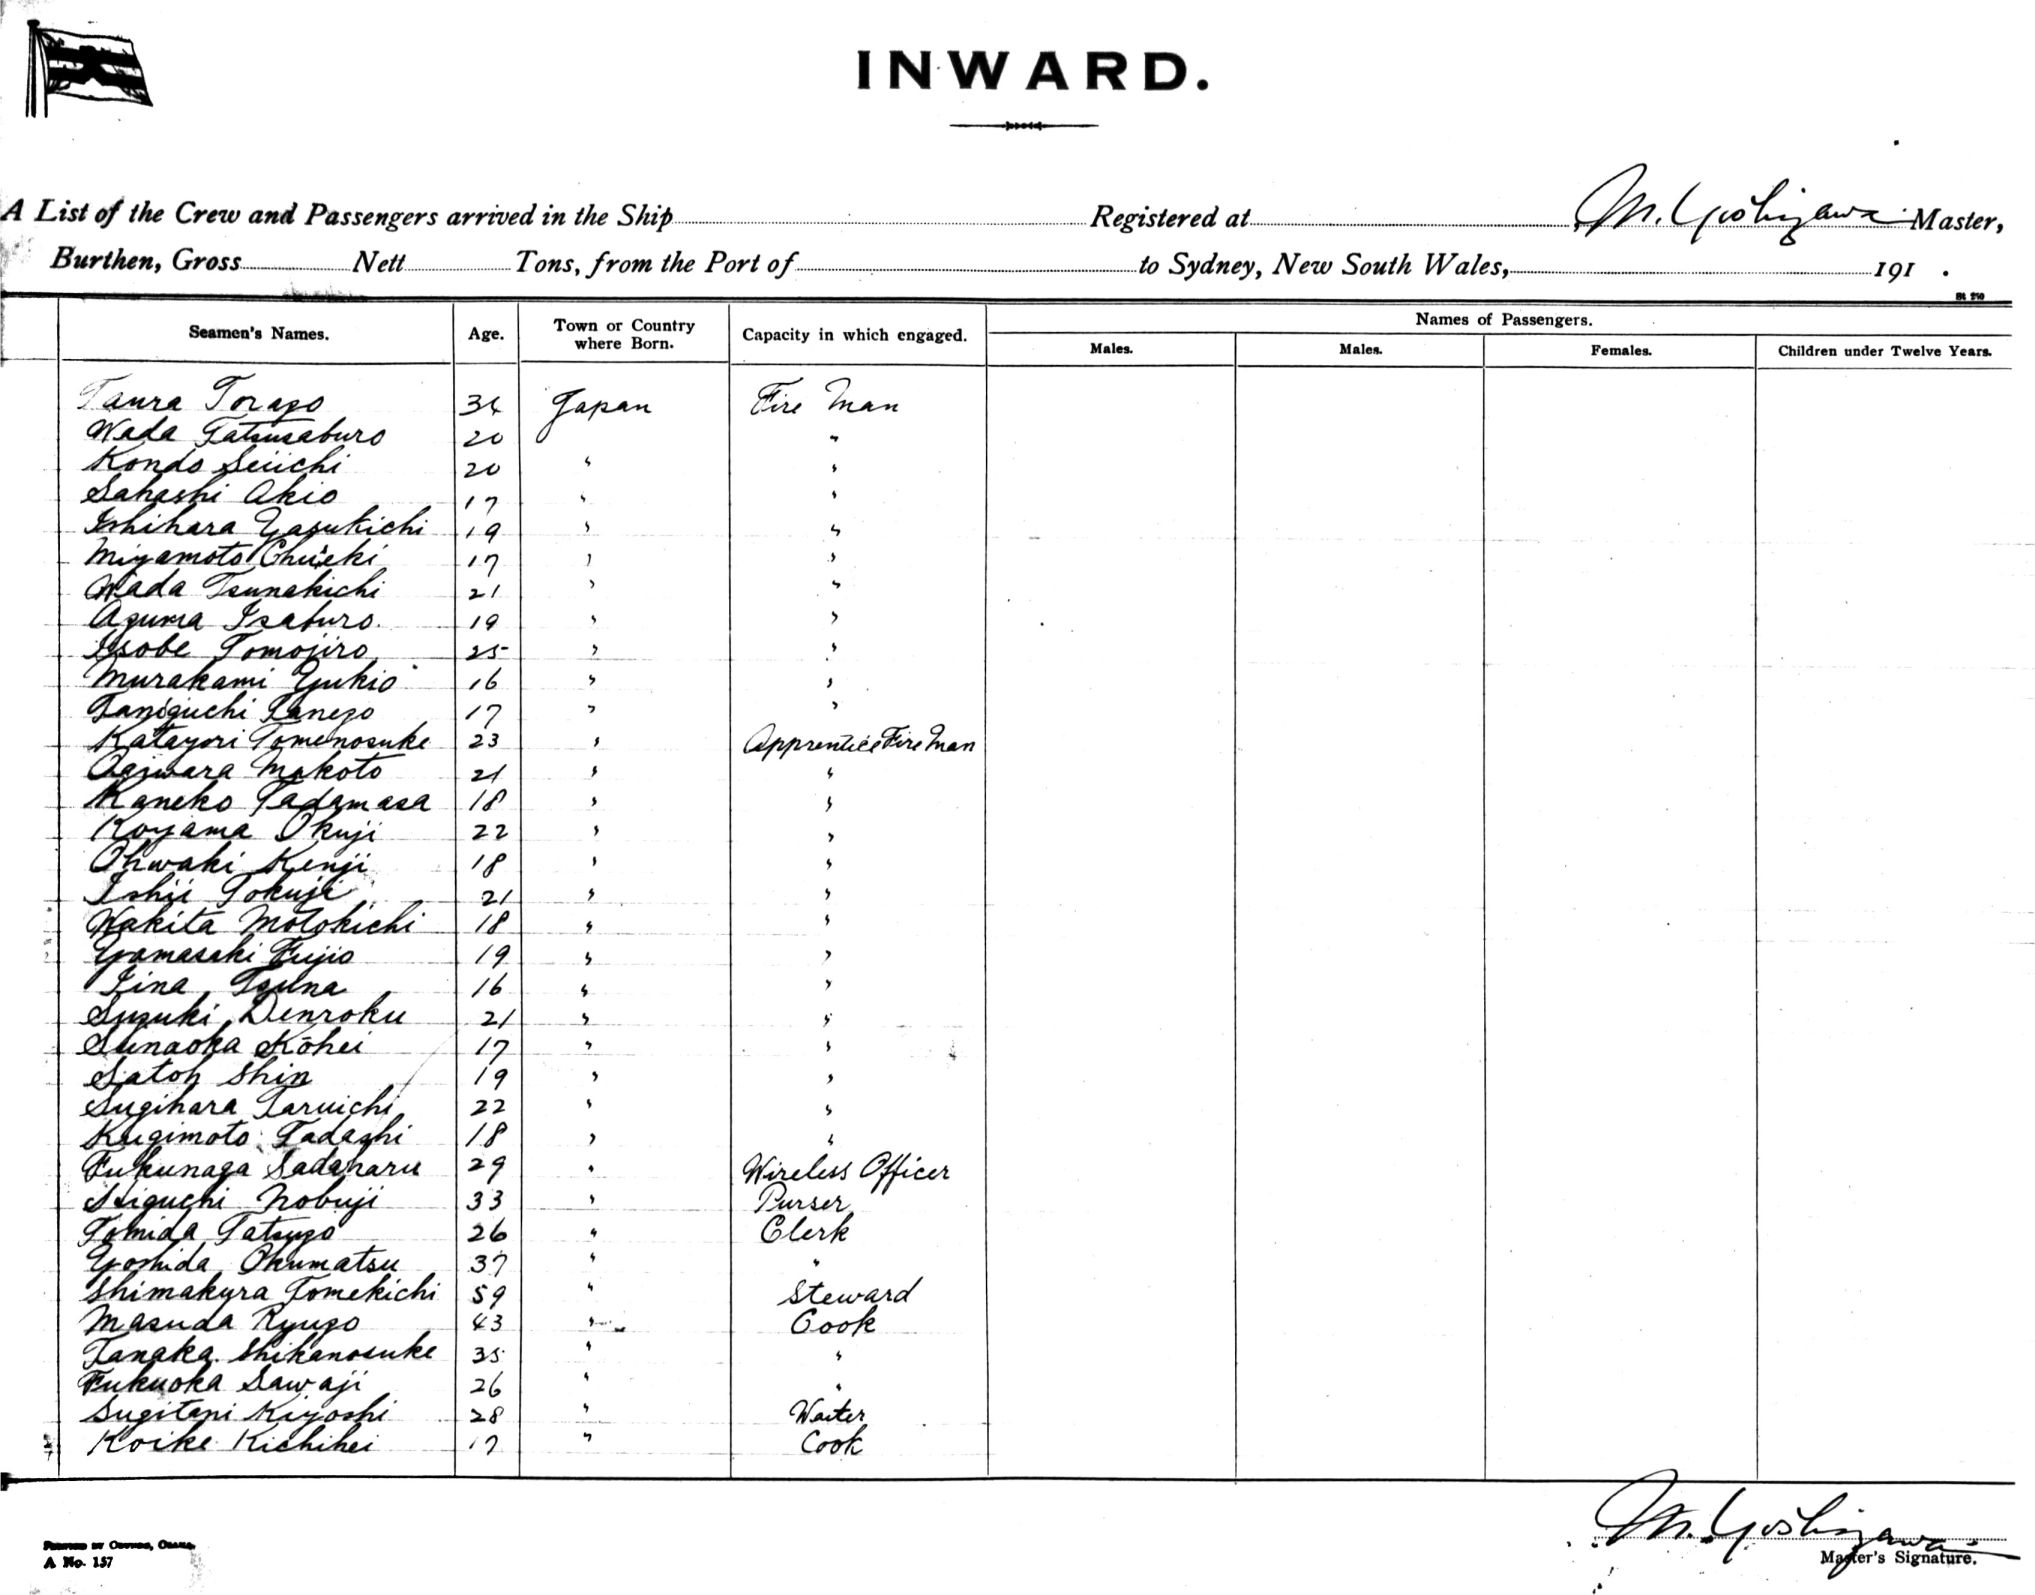 INWARD.
A List of the Crew and Passengers arrived in the Ship Registered at M. Yoshizawa Master,
Burthen, Gross Nett Tons, from the Port of to Sydney, New South Wales, 191 .
Seamen's Names. Age. Town or Country where Born. Capacity in which engaged. Names of Passengers.
Males. Males. Females. Children under Twelve Years.
Taura Torazo 34 Japan Fire Man
Wada Tatsusaburo 20 "
Kondo Seiichi 20 " "
Sahashi Akio 17 " "
Ishihara Yasukichi 19 " "
Miyamoto Chueki 17 " "
Wada Tsunekichi 21 " "
Azuma Isaburo. 19 " "
Isobe Tomojiro 25 " "
Murakami Yukio 16 " "
Taniguchi Tanezo 17 " "
Katayori Tomenosuke 23 " Apprentice Fire Man
Ogiwara Makoto 21 " "
Kaneko Tadamasa 18 " "
Koyama Okuji 22 " "
Ohwaki Kenji 18 " "
Ishii Tokuji 21 " "
Wakita Motokichi 18 " "
Yamasaki Fujio 19 " "
Iina Tsuna 16 " "
Suzuki Denroku 21 " "
Sunaoka Kōhei 17 " "
Satoh Shin 19 " "
Sugihara Taruichi 22 " "
Kugimoto Tadashi 18 " "
Fukunaga Sadaharu 29 " Wireless Officer
Higuchi Nobuji 33 " Purser
Tomida Tatsuzo 26 " Clerk
Yoshida Okumatsu 37 " "
Shimakura Tomekichi 59 " Steward
Masuda Ryuzo 43 " Cook
Tanaka Shikanosuke 35 " "
Fukuoka Sawaji 26 " "
Sugitani Kiyoshi 28 " Waiter
Koike Kichihei 17 " Cook
M. Yoshizawa
Master's Signature.
A No. 157